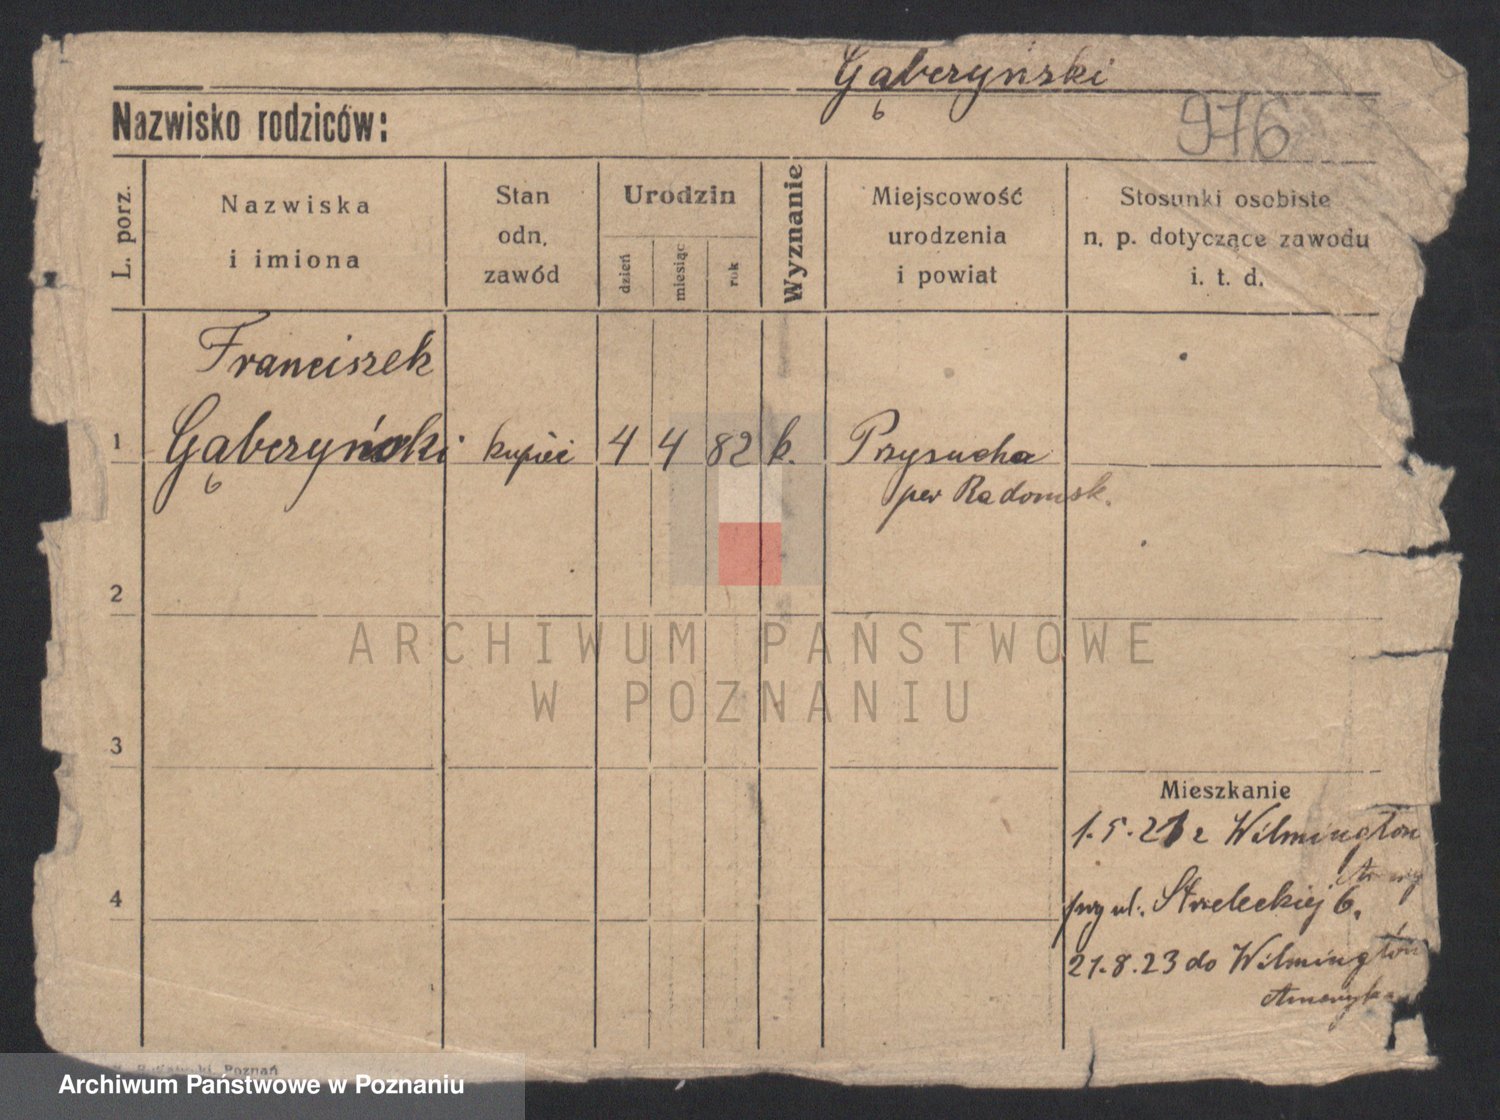 Gąbczyński
Nazwisko rodziców:
976
L. porz.
Nazwiska
i imiona
Stan
odn.
zawód
Urodzin
dzień
miesiąc
rok
Wyznanie
Miejscowość
urodzenia
i powiat
Stosunki osobiste
n. p. dotyczące zawodu
i. t. d.
Franciszek
1 Gąbczyński kupiec 4 4 82 k. Przysucha
pow Radomsk.
2
ARCHIWUM PAŃSTWOWE
W POZNANIU
3
Mieszkanie
1.5.21 z Wilmington
przy ul. Strzeleckiej 6.
4
21.8.23 do Wilmington
Ameryka
Poznań
Archiwum Państwowe w Poznaniu